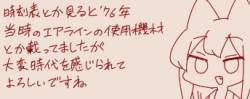 時刻表とか見ると'76年
当時のエアラインの使用機材
とか載ってましたが
大変時代を感じられて
よろしいですね